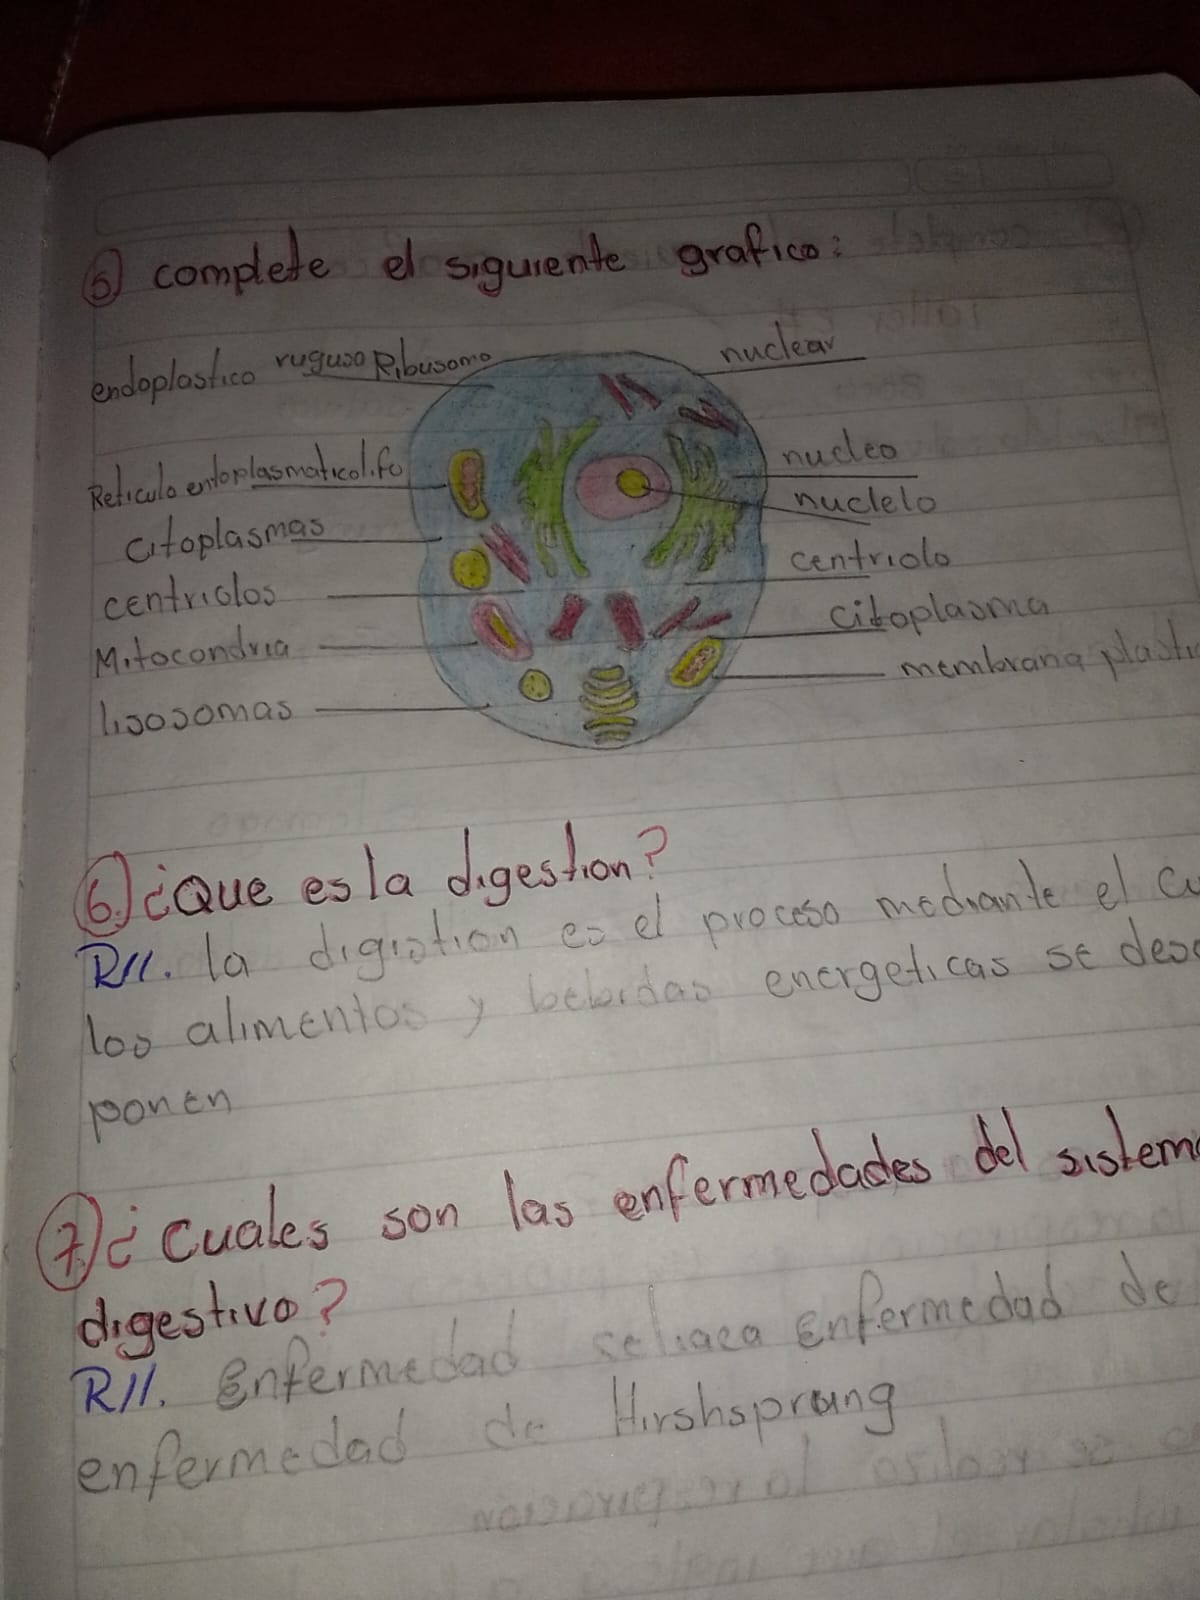 5) complete el siguiente grafico:
endoplastico ruguso Ribusomo
nuclear
Reticulo entoplasmatico lifo
citoplasmas
centriolos
Mitocondria
lisosomas
nucleo
nuclelo
centriolo
citoplasma
membrana plasti
6.) ¿Que es la digestion?
R//. la digistion es el proceso mediante el cu
los alimentos y bebidas energeticas se desc
ponen
7.) ¿cuales son las enfermedades del sistema
digestivo?
R//. Enfermedad seliaca Enfermedad de
enfermedad de Hirshsprung